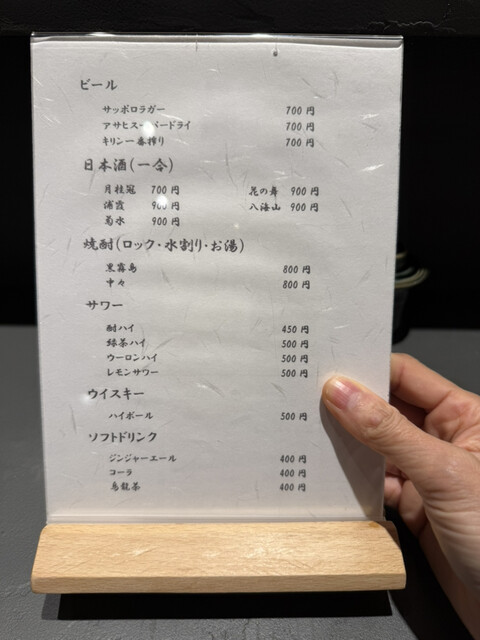 ビール
サッポロラガー 700 円
アサヒスーパードライ 700 円
キリン一番搾り 700 円
日本酒(一合)
月桂冠 700 円 花の舞 900 円
浦霞 900 円 八海山 900 円
菊水 900 円
焼酎(ロック・水割り・お湯)
黒霧島 800 円
中々 800 円
サワー
酎ハイ 450 円
緑茶ハイ 500 円
ウーロンハイ 500 円
レモンサワー 500 円
ウイスキー
ハイボール 500 円
ソフトドリンク
ジンジャーエール 400 円
コーラ 400 円
烏龍茶 400 円